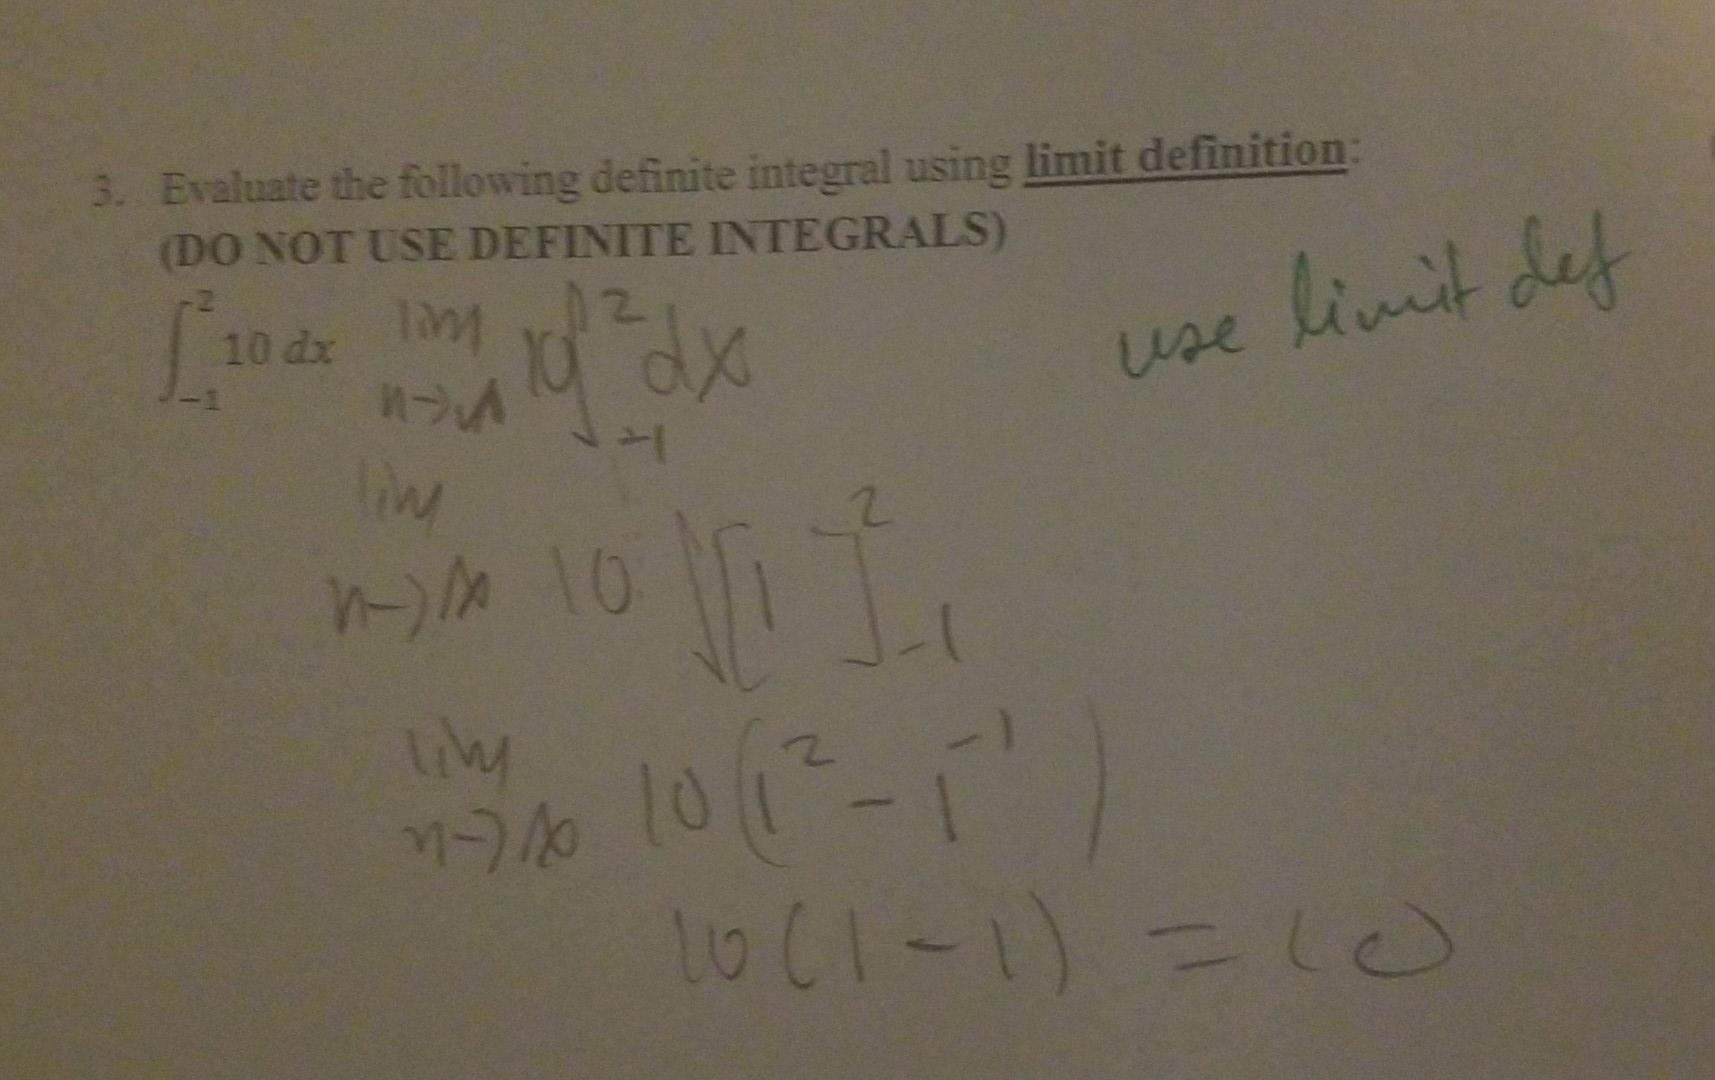 3. Evaluate the following definite integral using limit definition:
(DO NOT USE DEFINITE INTEGRALS)
use limit def
∫_{-1}^{2} 10 dx lim n→∞ 10∫_{-1}^{2} dx
lim n→∞ 10 ∫[1]_{-1}^{2}
lim n→∞ 10(1^2 - 1^{-1})
10(1-1) = 10